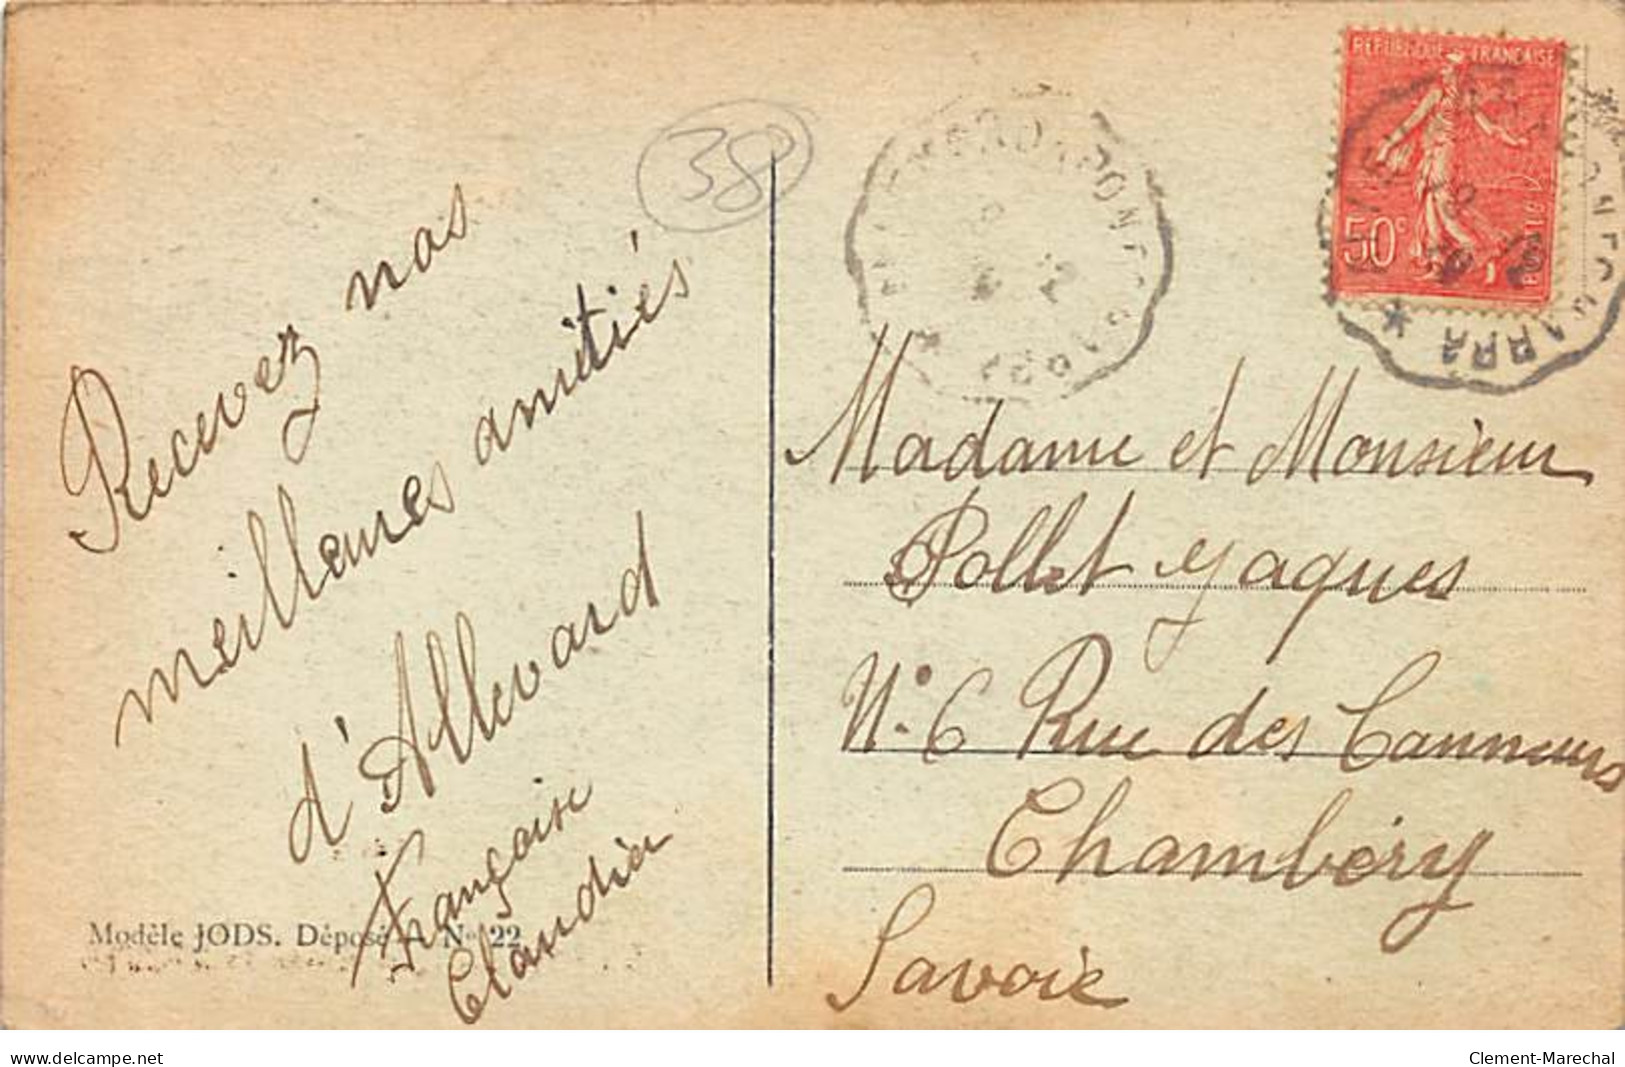 38
Recevez nos
meilleures amitiés
d'Allevard
Françoise
Claudia
Modèle JODS. Déposé N° 22
RÉPUBLIQUE FRANÇAISE
50c
Madame et Monsieur
Pollet Jaques
N° 6 Rue des Canneurs
Chambéry
Savoie
delcampe.net
Clement-Marechal